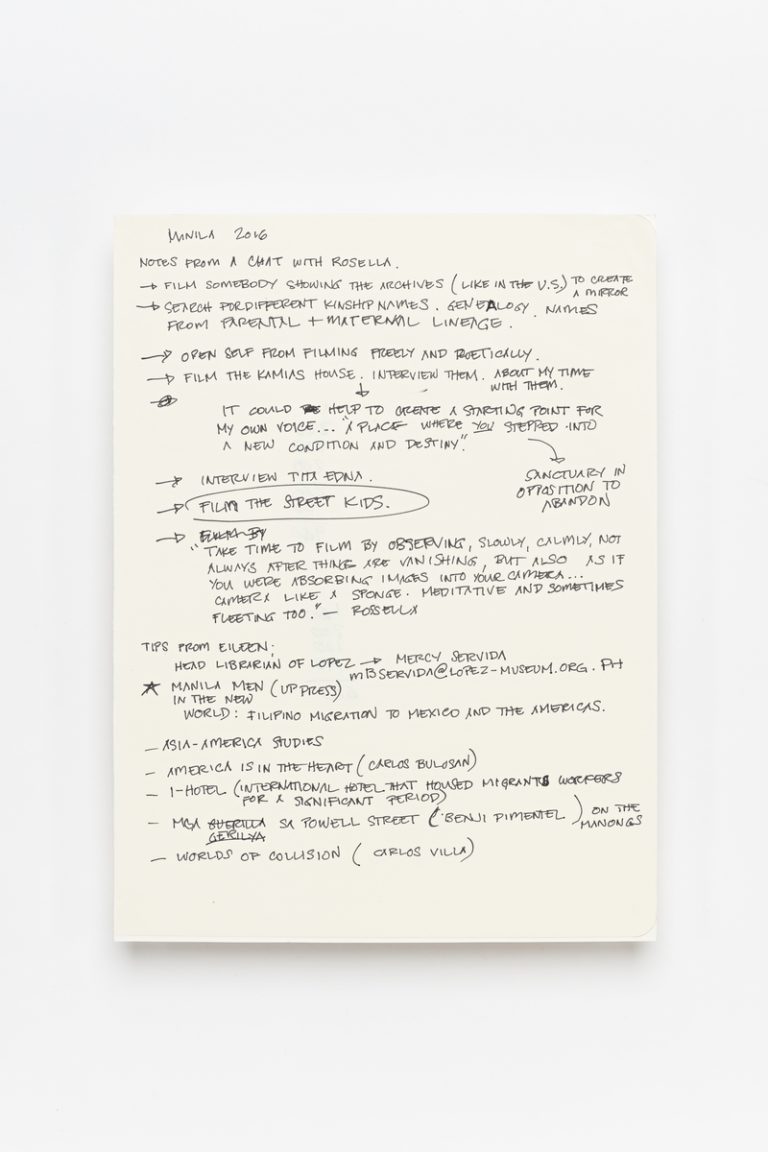 MANILA 2016
NOTES FROM A CHAT WITH ROSELLA.
→ FILM SOMEBODY SHOWING THE ARCHIVES (LIKE IN THE U.S.) TO CREATE A MIRROR
→ SEARCH FOR DIFFERENT KINSHIP NAMES. GENEALOGY. NAMES
FROM PARENTAL + MATERNAL LINEAGE.
→ OPEN SELF FROM FILMING FREELY AND POETICALLY.
→ FILM THE KAMIAS HOUSE. INTERVIEW THEM. ABOUT MY TIME
WITH THEM.
IT COULD HELP TO CREATE A STARTING POINT FOR
MY OWN VOICE... "A PLACE WHERE YOU STEPPED INTO
A NEW CONDITION AND DESTINY."
SANCTUARY IN
OPPOSITION TO
ABANDON
→ INTERVIEW TITA EDNA.
→ FILM THE STREET KIDS.
→ FILM BY
"TAKE TIME TO FILM BY OBSERVING, SLOWLY, CALMLY, NOT
ALWAYS AFTER THING ARE VANISHING, BUT ALSO AS IF
YOU WERE ABSORBING IMAGES INTO YOUR CAMERA...
CAMERA LIKE A SPONGE. MEDITATIVE AND SOMETIMES
FLEETING TOO." — ROSSELLA
TIPS FROM EILEEN:
HEAD LIBRARIAN OF LOPEZ → MERCY SERVIDA
mBSERVIDA@LOPEZ-MUSEUM.ORG.PH
★ MANILA MEN (UP PRESS)
IN THE NEW
WORLD: FILIPINO MIGRATION TO MEXICO AND THE AMERICAS.
— ASIA-AMERICA STUDIES
— AMERICA IS IN THE HEART (CARLOS BULOSAN)
— I-HOTEL (INTERNATIONAL HOTEL THAT HOUSED MIGRANT WORKERS
FOR A SIGNIFICANT PERIOD)
— MGA GUERILLA SA POWELL STREET (BENJI PIMENTEL) ON THE
MANONGS
GERILYA
— WORLDS OF COLLISION (CARLOS VILLA)